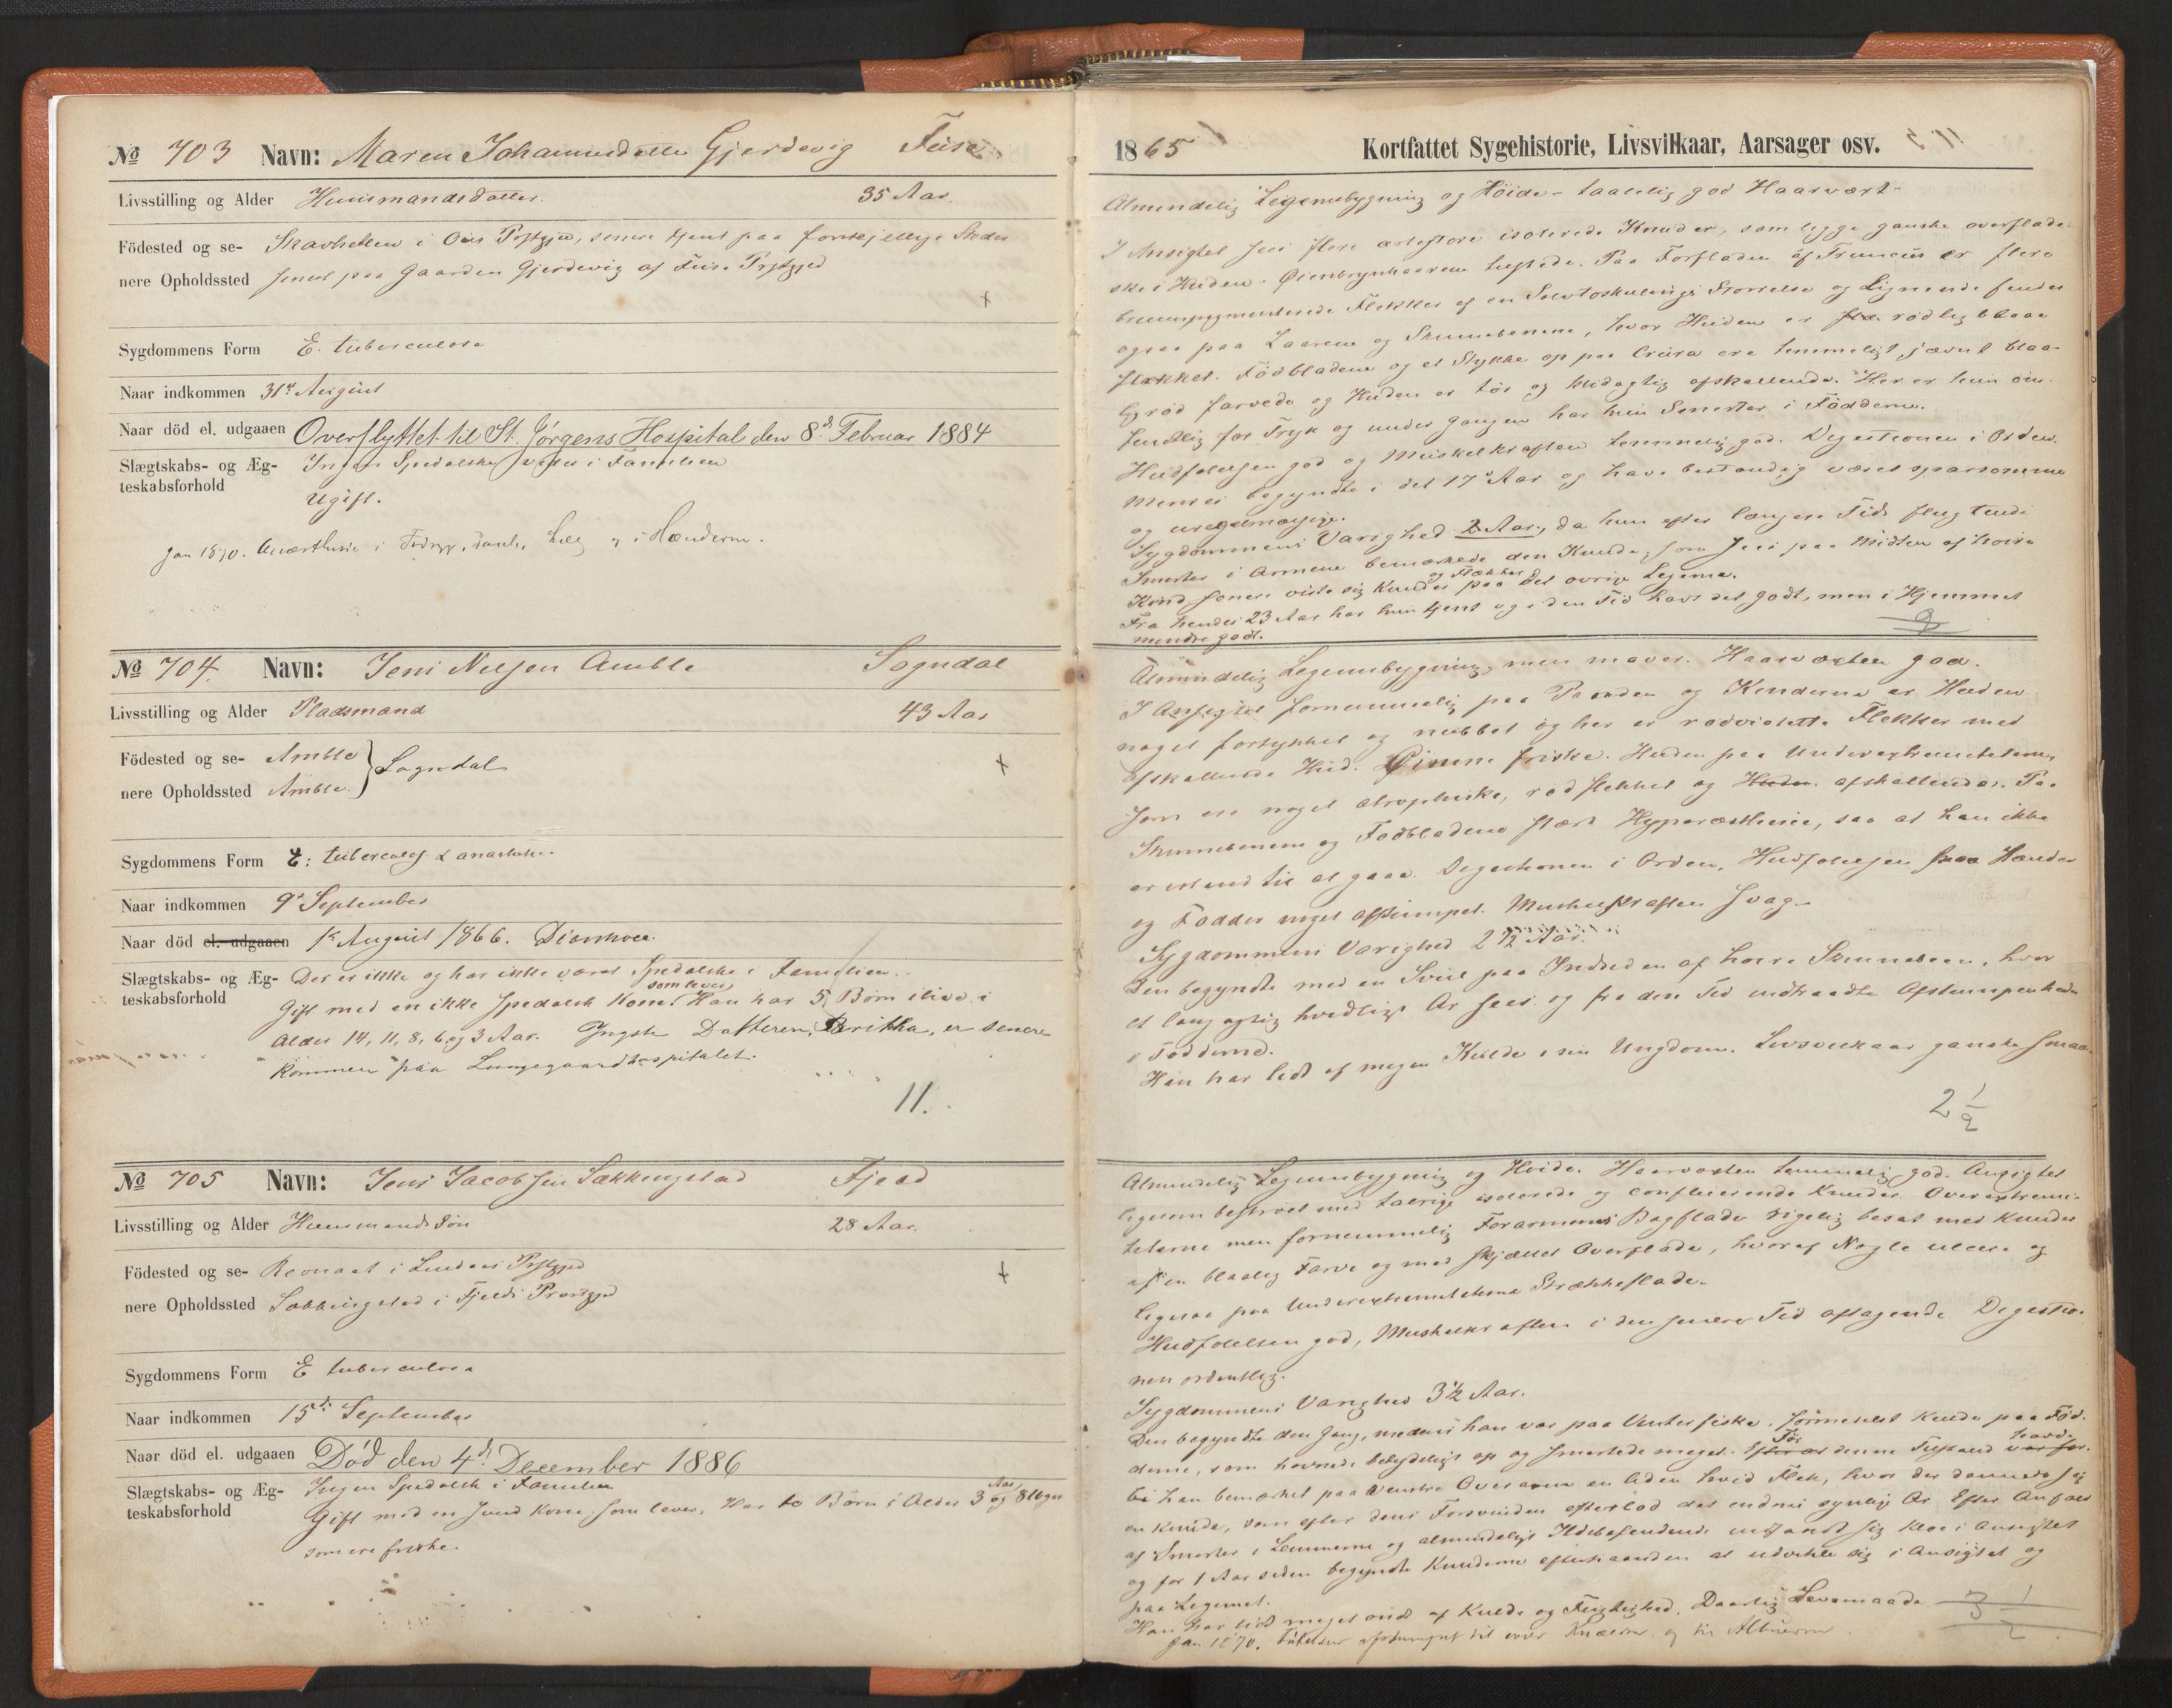 № 703 Navn: Maren Johannesdatter Gjerdevig Feiré
Livsstilling og Alder Huusmandsdatter. 35 Aar.
Födested og se- Skarhellen i Præstgjed, senere tjent paa forskjellige Steder
nere Opholdssted senest paa Gaarden Gjerdevig af Præstgjed
+
Sygdommens Form E. tuberculosa
Naar indkommen 31te August
Naar död el. udgaaen Overflyttet til St. Jørgens Hospital den 8d. Februar 1884
Slægtskabs- og Æg- Ingen Spedalske i Familien
teskabsforhold Ugift.
Jan 1870. Anæsthesie i og i Hænderne.
№ 704. Navn: Jens Nilsen Amble Sogndal
Livsstilling og Alder Pladsmand 43 Aar
Födested og se- Amble } Sogndal
nere Opholdssted Amble
+
Sygdommens Form E: tuberculos. & anæsthet.
Naar indkommen 9de September
Naar död el. udgaaen 1ste August 1866. Diarrhoea.
Slægtskabs- og Æg- Der er ikke og har ikke været Spedalske i Familien.
teskabsforhold Gift med en ikke spedalsk Kone som lever. Han har 5 Børn ilive i
Alder 14, 11, 8, 6 og 3 Aar. Yngste Datteren, Britha, er senere
kommen paa Lungegaardhospitalet.
11.
№ 705 Navn: Jens Jacobsen Sækkingstad Fjeld
Livsstilling og Alder Huusmandssön 28 Aar.
Födested og se- i Lindaas Præstgjed
nere Opholdssted Sækkingstad i Fjelds Præstgjed
+
Sygdommens Form E tuberculosa
Naar indkommen 15de September
Naar död el. udgaaen Död den 4d. December 1886
Slægtskabs- og Æg- Ingen Spedalsk i Familien
teskabsforhold Gift med en sund Kone, som lever. Har to Börn i Alder 3 Aar og 8 Uger
som ere friske.
1865 Kortfattet Sygehistorie, Livsvilkaar, Aarsager osv.
Almindelig Legemsbygning og Höide - taalelig god Haarvæxt -
I Ansigtet sees flere ertestore isolerede Knuder, som ligge ganske overflade-
ske i Huden. Øienbrynhaarene. Paa Forfladen af Truncus er flere
brunpigmenterede Flekker af en Størrelse og Lignende findes
ogsaa paa Laarene og Skinnebenene, hvor Huden er rødlig blaa
flækket. Fødbladene og et Stykke op paa Crura ere temmeligt jævnt blaa-
lig rød farvede og Huden er tör og afskallende. Her er hun öm-
findtlig for Tryk og under Gangen har hun Smerter i Födderne.
Hudfølelsen god og Muskelkraften temmelig god. Digestionen i Orden.
Menses begyndte i det 17de Aar og have bestandig været sparsomme
og uregelmæssige.
Sygdommens Varighed 2 Aar, da hun efter længere Tids
Smerter i Armene bemærkede den Knude, som sees paa Midten af höire
Kind. Senere viste sig Knuder og Flækker paa det øvrige Legeme.
Fra hendes 23 Aar har hun tjent og i den Tid havt det godt, men i Hjemmet
mindre godt.
2
Almindelig Legemsbygning, men maver. Haarvæxten god.
I Ansigtet fornemmelig paa Panden og Kinderne er Huden
noget fortykket og nubbet og her er rødviolette Flekker med
afskallende Hud. Øinene friske. Huden paa Underextremiteterne,
som ere noget atrophiske, rødflekket og afskallende. Paa
Skinnebenene og Fodbladene stærk Hyperæsthesie, saa at han ikke
er istand til at gaae. Digestionen i Orden. Hudfølelsen paa Hænder
og Fødder noget afstumpet. Muskelkraften svag.
Sygdommens Varighed 2½ Aar.
Den begyndte med en paa Indsiden af høire Skinneben, hvor
et langagtig hvidligt Ar sees. og fra den Tid indtraadte Afstumpenheden
i Födderne.
Han har lidt af megen Kulde i sin Ungdom. Livsvilkaar ganske smaa.
2 1/2
Almindelig Legemsbygning og Høide. Haarvæxten temmelig god. Ansigtet
ligesom bestrøet med talrige isolerede og confluerende Knuder. Overextremi-
teterne men fornemmelig Forarmenes Bagflade rigelig besat med Knuder
af en blaalig Farve og med skjællet Overflade, hvoraf Nogle ulcere og
ligesaa paa Underextremiteterne Strækkeflade.
Hudfølelsen god, Muskelkraften i den senere Tid aftagende. Digestio-
nen ordentlig.
Sygdommens Varighed 3½ Aar.
Den begyndte den Gang, medens han var paa Vinterfiske. Knude paa Föd-
derne, som hovnede betydeligt op og smertede meget. Før denne Tilstand havde
han bemærket paa venstre Overarm en liden hvid Flek, hvor der dannede sig
en Knude, som efter dens Forsvinden efterlod det endnu synlig Ar. Efter Anfald
af Smerter i Lemmerne og almindeligt Ildebefindende indfandt sig Kløe i Ansigtet
og for 1 Aar siden begyndte Knuderne efterhaanden at udvikle sig i Ansigtet og
paa Legemet.
Han har lidt meget ondt af Kulde og Fugtighed. Daarlig Levemaade.
3 1/2
Jan 1870. afstumpet til over Knæerne og til Albuerne.